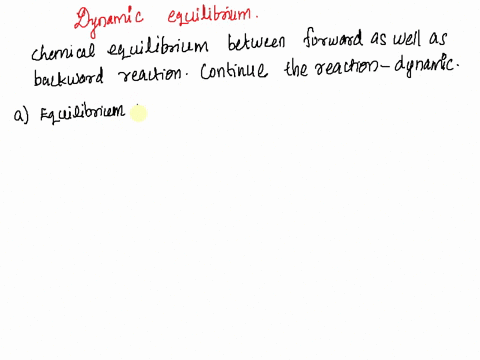 Dynamic equilibrium.
chemical equilibrium between forward as well as
backward reaction. Continue the reaction - dynamic.
a) Equilibrium